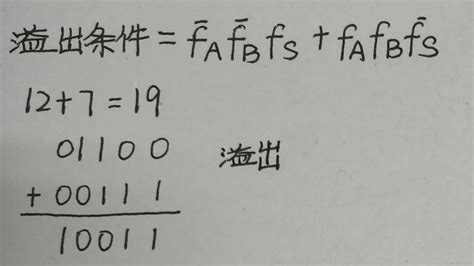 溢出条件 = f̄_A f̄_B f_S + f_A f_B f̄_S
12+7=19
01100
溢出
+ 00111
10011